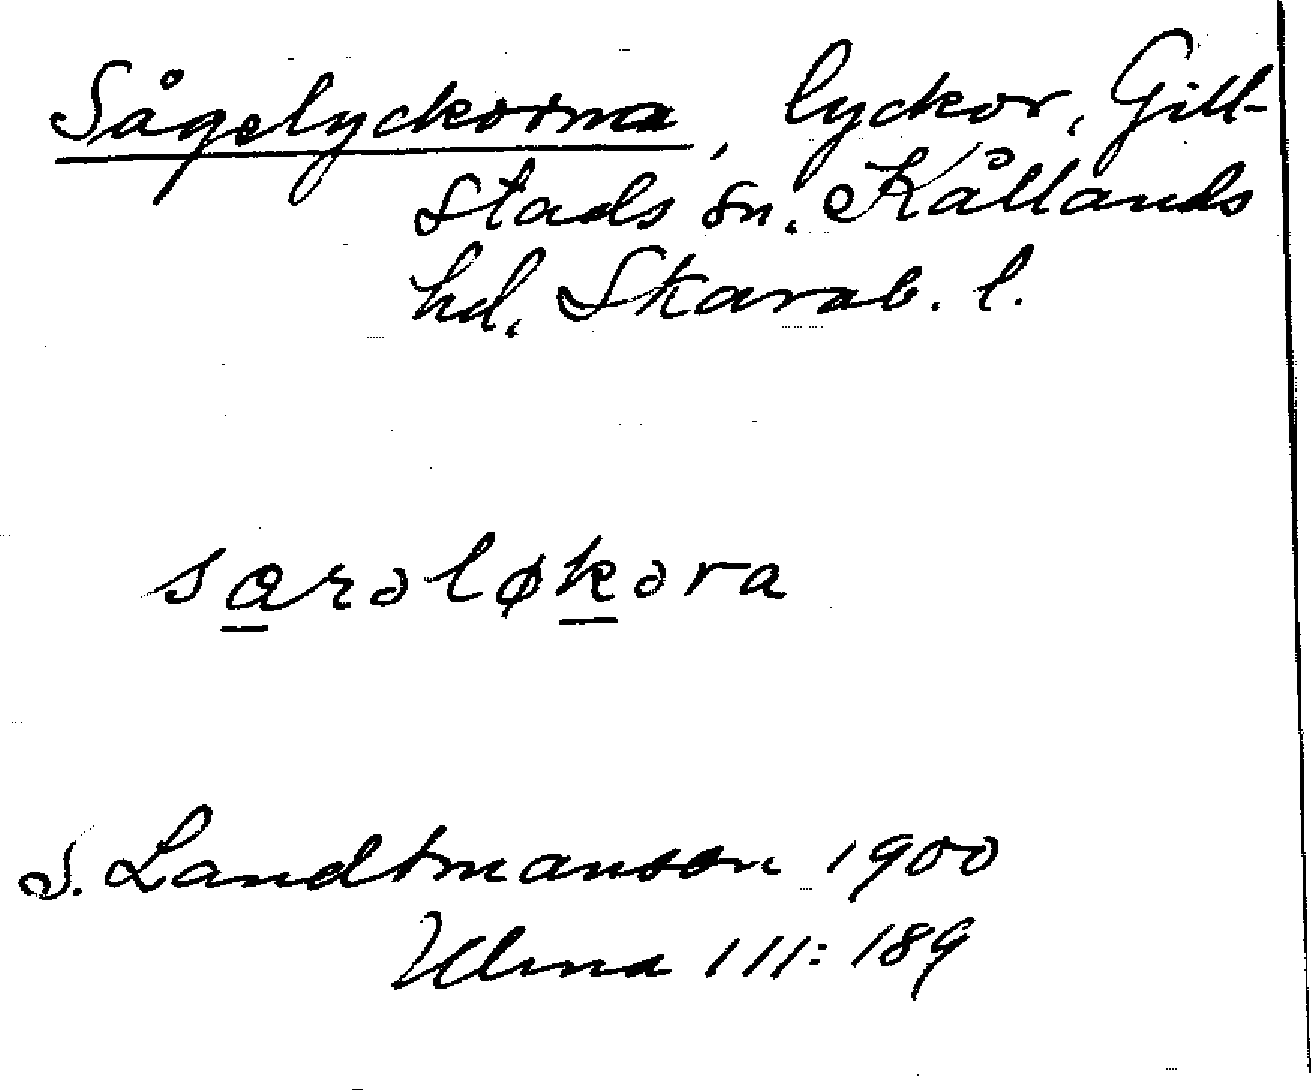 Sågelyckorna, lyckor, Gill-
stads sn. Kållands
hd. Skarab. l.
særəløkəra
S. Landtmanson 1900
Ulma 111: 189